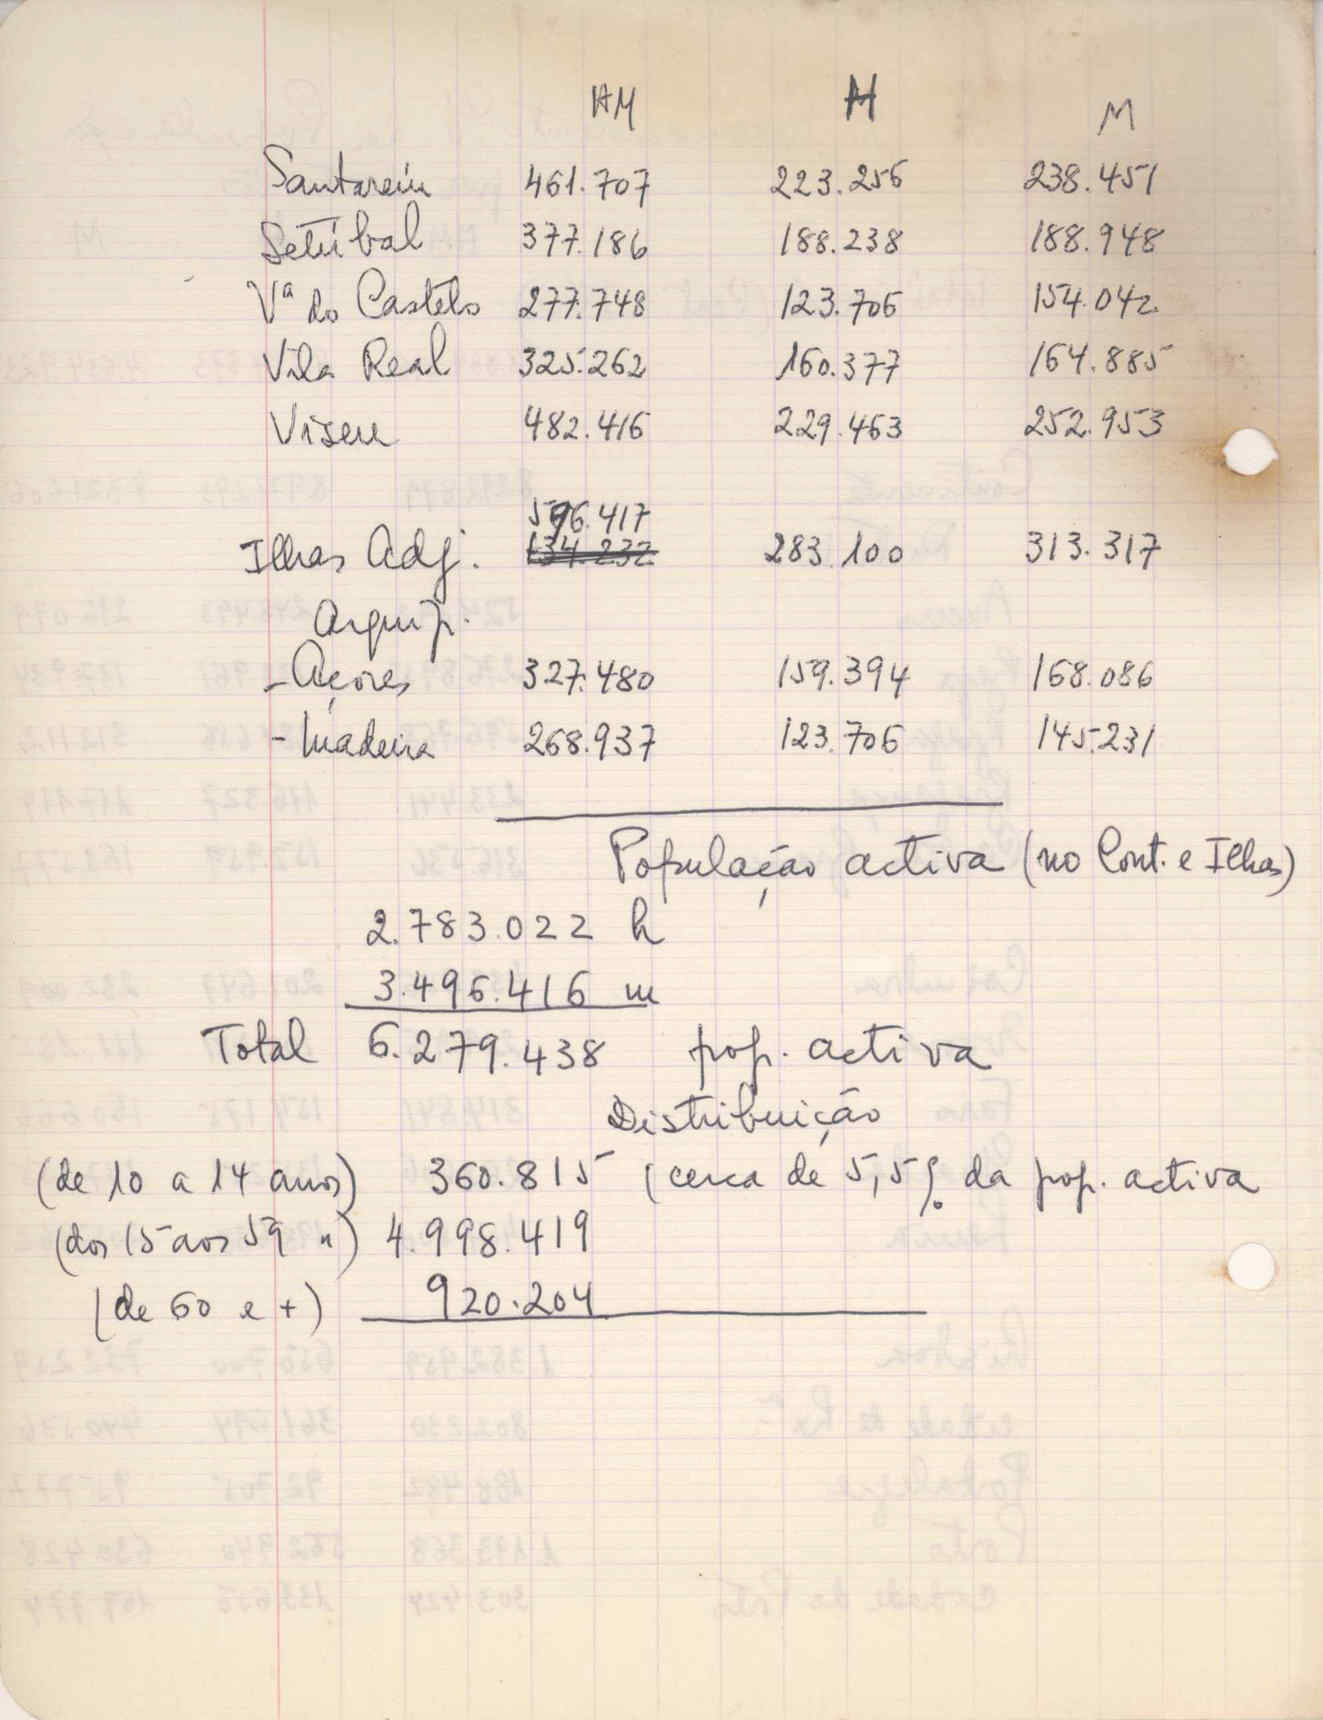 HM H M
Santarém 461.707 223.256 238.451
Setúbal 377.186 188.238 188.948
Vª do Castelo 277.748 123.706 154.042
Vila Real 325.262 160.377 164.885
Viseu 482.416 229.463 252.953
596.417
Ilhas Adj. 134.232 283.100 313.317
Arquip.
- Açores 327.480 159.394 168.086
- Madeira 268.937 123.706 145.231
População activa (no Cont. e Ilhas)
2.783.022 h
3.496.416 m
Total 6.279.438 pop. activa
Distribuição
(de 10 a 14 anos) 360.815 (cerca de 5,5% da pop. activa
(dos 15 aos 59 ") 4.998.419
(de 60 e +) 920.204